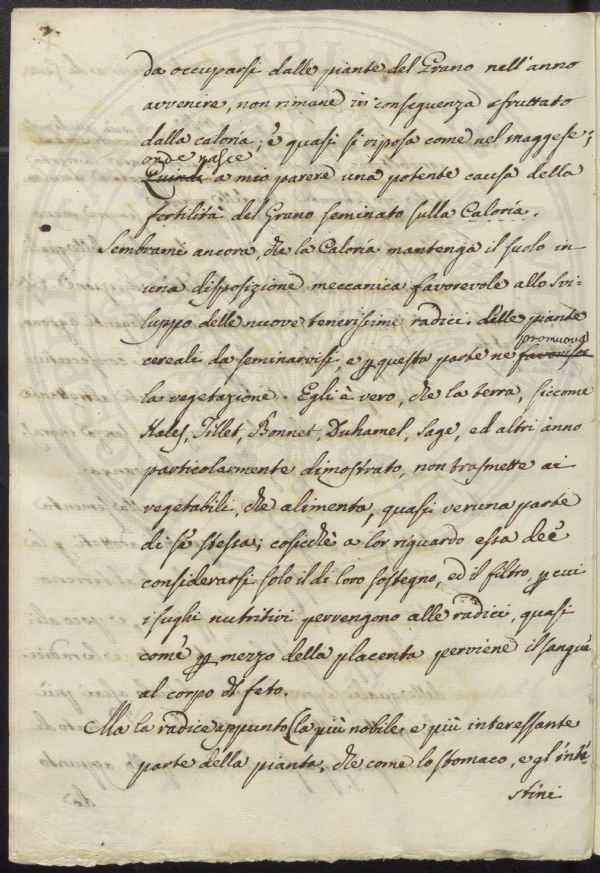 da occuparsi dalle piante del Grano nell'anno
avvenire, non rimane in conseguenza sfruttato
dalla caloria; e quasi si riposa come nel maggese;
onde nasce
Quindi a mio parere una potente causa della
fertilità del Grano seminato sulla Caloria.
Sembrami ancora, che la Caloria mantenga il suolo in
una disposizione meccanica favorevole allo svi-
luppo delle nuove tenerissime radici delle piante
promuova
cereali da seminarvisi, e p questa parte ne favorisca
la vegetazione. Egli è vero, che la terra, siccome
Hales, Tillet, Bonnet, Duhamel, Sage, ed altri anno
particolarmente dimostrato, non trasmette ai
vegetabili, che alimenta, quasi veruna parte
di sè stessa; cosicchè a lor riguardo essa deè
considerarsi solo il di loro sostegno, ed il filtro, p cui
i sughi nutritivi pervengono alle radici, quasi
come p mezzo della placenta perviene il sangue
al corpo di feto.
Ma la radice appunto (la più nobile e più interessante
parte della pianta, che come lo stomaco, e gl'inte-
stini